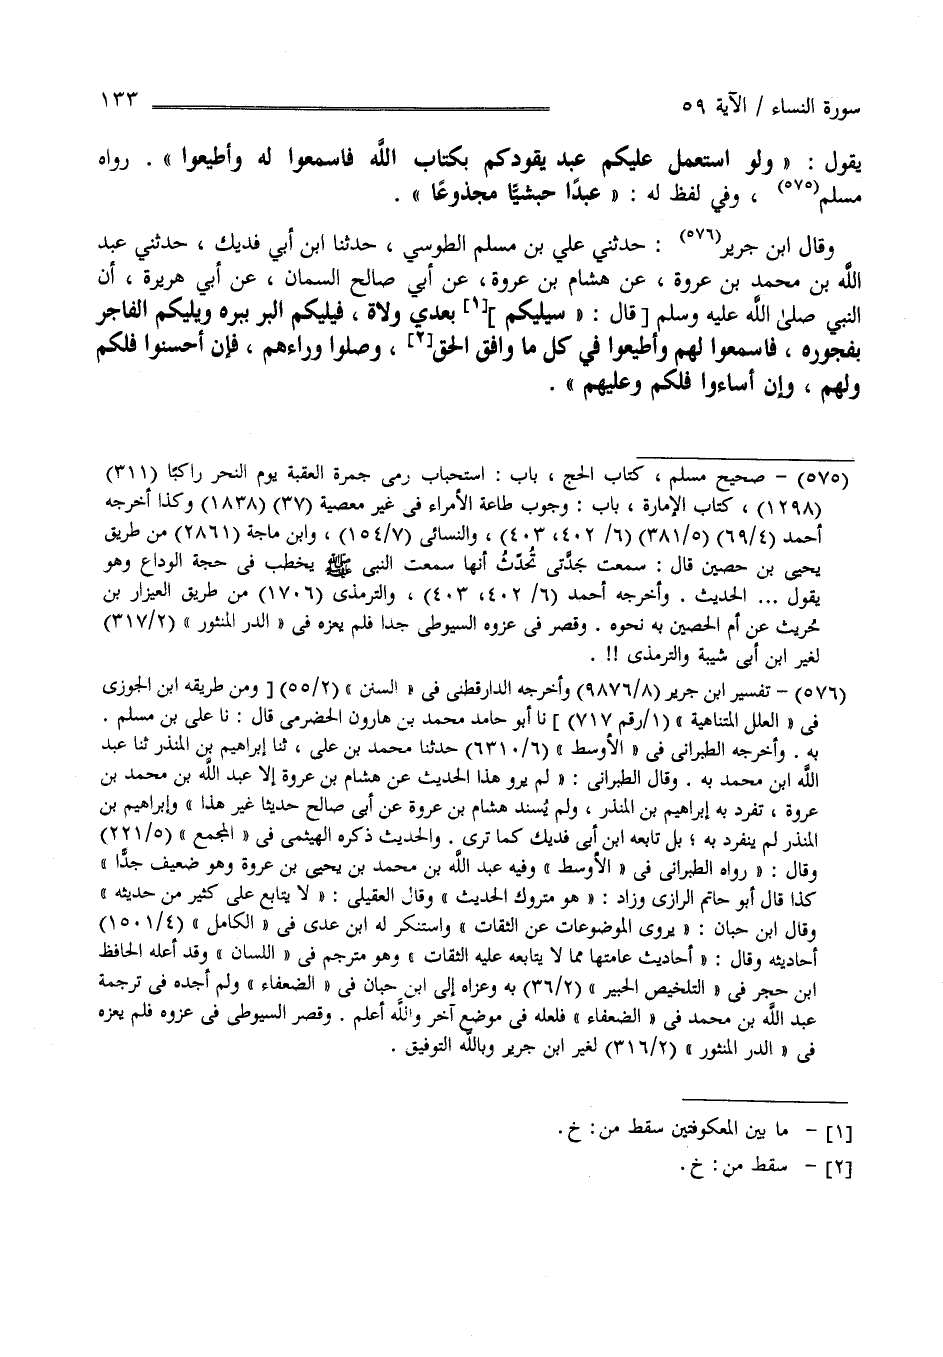 سورة النساء / الآية ٥٩ ١٣٣
يقول : « ولو استعمل عليكم عبد يقودكم بكتاب اللَّه فاسمعوا له وأطيعوا » . رواه
مسلم(٥٧٥) ، وفي لفظ له : « عبدًا حبشيًّا مجدوعًا » .
وقال ابن جرير(٥٧٦) : حدثني علي بن مسلم الطوسي ، حدثنا ابن أبي فديك ، حدثني عبد
اللَّه بن محمد بن عروة ، عن هشام بن عروة، عن أبي صالح السمان ، عن أبي هريرة ، أن
النبي صلىٰ اللَّه عليه وسلم [ قال : « سيليكم ][١] بعدي ولاة ، فيليكم البر ببره ويليكم الفاجر
بفجوره ، فاسمعوا لهم وأطيعوا في كل ما وافق الحق[٢] ، وصلوا وراءهم ، فإن أحسنوا فلكم
ولهم ، وإن أساءوا فلكم وعليهم » .
(٥٧٥) - صحيح مسلم ، كتاب الحج ، باب : استحباب رمى جمرة العقبة يوم النحر راكبًا (٣١١)
(١٢٩٨) ، كتاب الإمارة ، باب : وجوب طاعة الأمراء فى غير معصية (٣٧) (١٨٣٨) وكذا أخرجه
أحمد (٦٩/٤) (٣٨١/٥) (٦/ ٤٠٢، ٤٠٣) ، والنسائى (١٥٤/٧) ، وابن ماجة (٢٨٦١) من طريق
يحيى بن حصين قال : سمعت جَدَّتى تُحَدّثُ أنها سمعت النبى ﷺ يخطب فى حجة الوداع وهو
يقول ... الحديث . وأخرجه أحمد (٦/ ٤٠٢، ٤٠٣) ، والترمذى (١٧٠٦) من طريق العيزار بن
حُريث عن أم الحصين به نحوه . وقصر فى عزوه السيوطى جدا فلم يعزه فى « الدر المنثور » (٣١٧/٢)
لغير ابن أبى شيبة والترمذى !! .
(٥٧٦) - تفسير ابن جرير (٩٨٧٦/٨) وأخرجه الدارقطنى فى « السنن » (٥٥/٢) [ ومن طريقه ابن الجوزى
فى « العلل المتناهية » (١/رقم ٧١٧) ] نا أبو حامد محمد بن هارون الحضرمى قال : نا على بن مسلم .
به . وأخرجه الطبرانى فى « الأوسط » (٦٣١٠/٦) حدثنا محمد بن على ، ثنا إبراهيم بن المنذر ثنا عبد
اللَّه ابن محمد به . وقال الطبرانى : « لم يرو هذا الحديث عن هشام بن عروة إلا عبد اللَّه بن محمد بن
عروة ، تفرد به إبراهيم بن المنذر ، ولم يُسند هشام بن عروة عن أبى صالح حديثا غير هذا » وإبراهيم بن
المنذر لم ينفرد به ؛ بل تابعه ابن أبى فديك كما ترى . والحديث ذكره الهيثمى فى « المجمع » (٢٢١/٥)
وقال : « رواه الطبرانى فى « الأوسط » وفيه عبد اللَّه بن محمد بن يحيى بن عروة وهو ضعيف جدًّا »
كذا قال أبو حاتم الرازى وزاد : « هو متروك الحديث » وقال العقيلى : « لا يتابع على كثير من حديثه »
وقال ابن حبان : « يروى الموضوعات عن الثقات » واستنكر له ابن عدى فى « الكامل » (١٥٠١/٤)
أحاديثه وقال : « أحاديث عامتها مما لا يتابعه عليه الثقات » وهو مترجم فى « اللسان » وقد أعله الحافظ
ابن حجر فى « التلخيص الحبير » (٣٦/٢) به وعزاه إلى ابن حبان فى « الضعفاء » ولم أجده فى ترجمة
عبد اللَّه بن محمد فى « الضعفاء » فلعله فى موضع آخر واللَّه أعلم . وقصر السيوطى فى عزوه فلم يعزه
فى « الدر المنثور » (٣١٦/٢) لغير ابن جرير وباللَّه التوفيق .
[١] - ما بين المعكوفتين سقط من: خ.
[٢] - سقط من: خ.